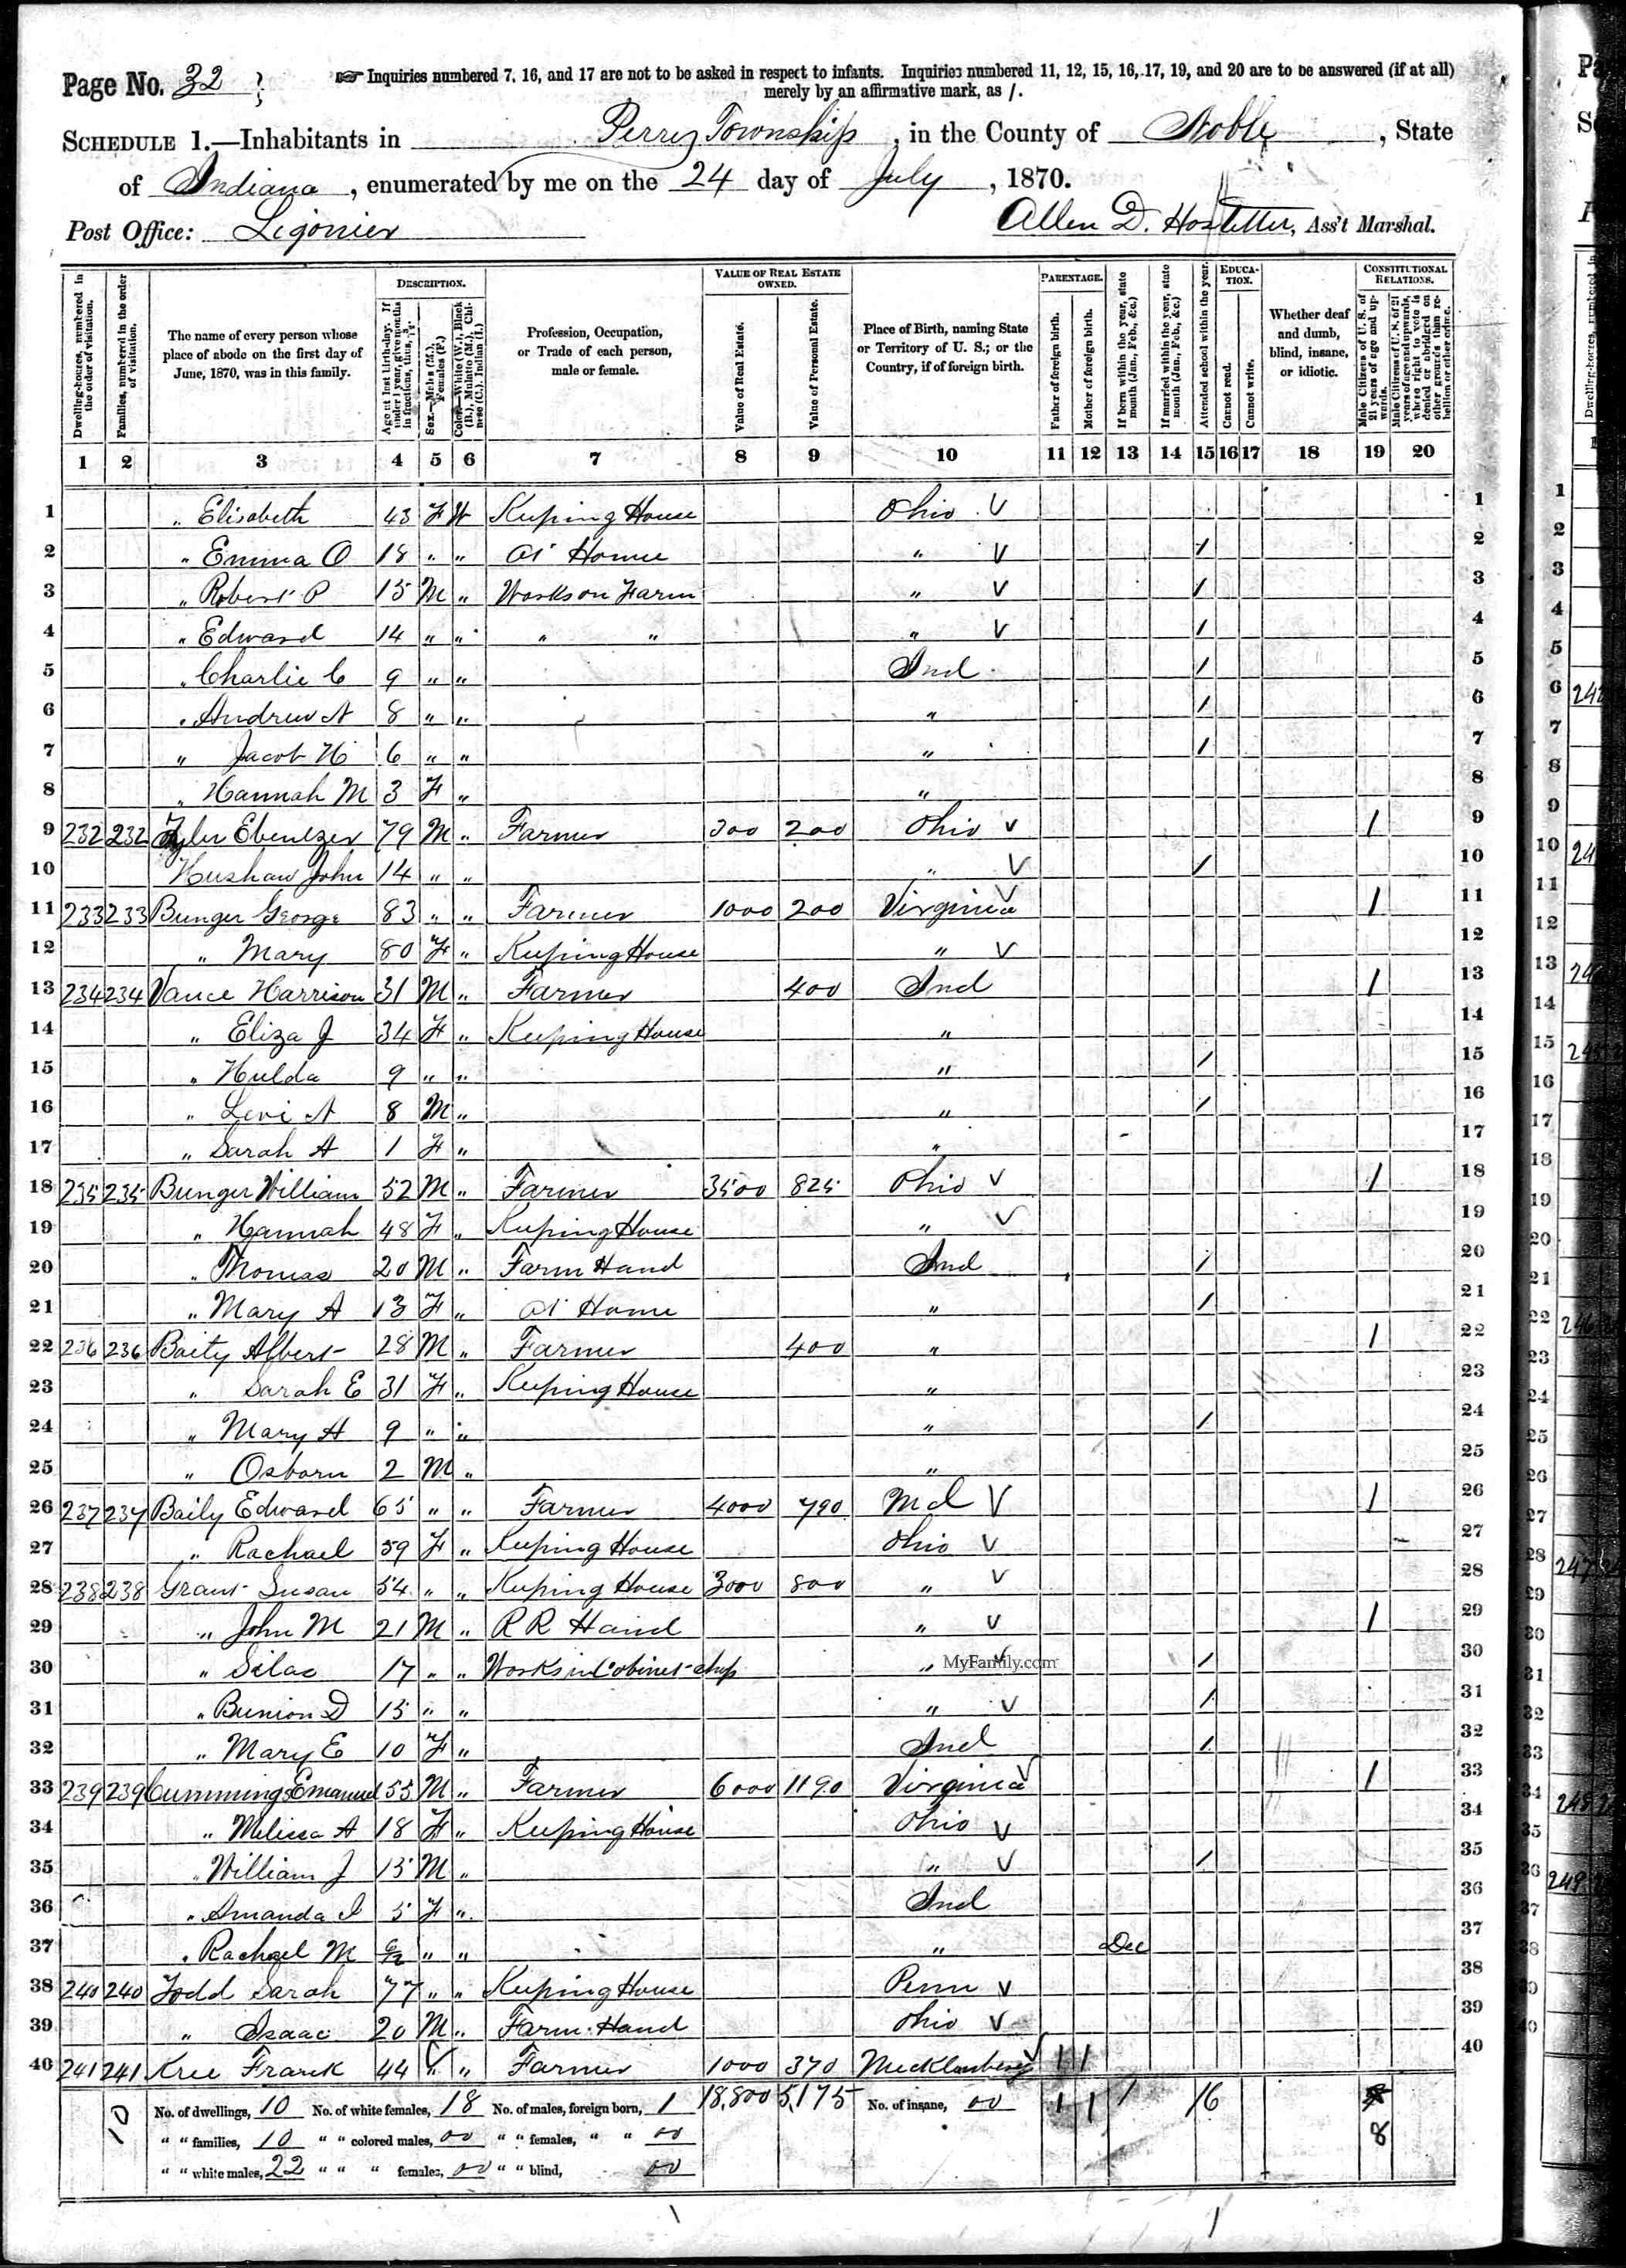 Page No. 32
☞ Inquiries numbered 7, 16, and 17 are not to be asked in respect to infants. Inquiries numbered 11, 12, 15, 16, 17, 19, and 20 are to be answered (if at all)
merely by an affirmative mark, as /.
SCHEDULE 1.—Inhabitants in Perry Township, in the County of Noble, State
of Indiana, enumerated by me on the 24 day of July, 1870.
Post Office: Ligonier Allen D. Hostetter, Ass't Marshal.
Dwelling-houses, numbered in the order of visitation.
Families, numbered in the order of visitation.
The name of every person whose place of abode on the first day of June, 1870, was in this family.
DESCRIPTION.
Age at last birth-day. If under 1 year, give months in fractions, thus, 3/12.
Sex.—Males (M.), Females (F.)
Color.—White (W.), Black (B.), Mulatto (M.), Chinese (C.), Indian (I.)
Profession, Occupation, or Trade of each person, male or female.
VALUE OF REAL ESTATE OWNED.
Value of Real Estate.
Value of Personal Estate.
Place of Birth, naming State or Territory of U. S.; or the Country, if of foreign birth.
PARENTAGE.
Father of foreign birth.
Mother of foreign birth.
If born within the year, state month (Jan., Feb., &c.)
If married within the year, state month (Jan., Feb., &c.)
Attended school within the year.
EDUCATION.
Cannot read.
Cannot write.
Whether deaf and dumb, blind, insane, or idiotic.
CONSTITUTIONAL RELATIONS.
Male Citizens of U. S. of 21 years of age and upwards.
Male Citizens of U. S. of 21 years of age and upwards, whose right to vote is denied or abridged on other grounds than rebellion or other crime.
1 2 3 4 5 6 7 8 9 10 11 12 13 14 15 16 17 18 19 20
1 " Elisabeth 43 F W Keeping House Ohio V 1
2 " Emma O 18 " " At Home " V / 2
3 " Robert P 15 M " Works on Farm " V / 3
4 " Edward 14 " " " " " V / 4
5 " Charlie C 9 " " Ind / 5
6 " Andrew N 8 " " " / 6
7 " Jacob H 6 " " " / 7
8 " Hannah M 3 F " " 8
9 232 232 Tyler Ebenezer 79 M " Farmer 300 200 Ohio V / 9
10 Hushaw John 14 " " " V / 10
11 233 233 Bunger George 83 " " Farmer 1000 200 Virginia V / 11
12 " Mary 80 F " Keeping House " V 12
13 234 234 Vance Harrison 31 M " Farmer 400 Ind / 13
14 " Eliza J 34 F " Keeping House " 14
15 " Hulda 9 " " " / 15
16 " Levi N 8 M " " / 16
17 " Sarah A 1 F " " 17
18 235 235 Bunger William 52 M " Farmer 3500 825 Ohio V / 18
19 " Hannah 48 F " Keeping House " V 19
20 " Thomas 20 M " Farm Hand Ind / 20
21 " Mary A 13 F " At Home " / 21
22 236 236 Baity Albert 28 M " Farmer 400 " / 22
23 " Sarah E 31 F " Keeping House " 23
24 " Mary A 9 " " " / 24
25 " Osborn 2 M " " 25
26 237 237 Baily Edward 65 " " Farmer 4000 790 Md V / 26
27 " Rachael 59 F " Keeping House Ohio V 27
28 238 238 Grant Susan 54 " " Keeping House 3000 800 " V 28
29 " John M 21 M " R R Hand " V / 29
30 " Silas 17 " " Works in Cabinet shop " V / 30
MyFamily.com
31 " Bunion D 15 " " " V / 31
32 " Mary E 10 F " Ind / 32
33 239 239 Cummings Emanuel 55 M " Farmer 6000 1190 Virginia V / 33
34 " Melissa A 18 F " Keeping House Ohio V 34
35 " William J 15 M " " V / 35
36 " Amanda I 5 F " Ind 36
37 " Rachael M 6/12 " " " Dec 37
38 240 240 Todd Sarah 77 " " Keeping House Penn V 38
39 " Isaac 20 M " Farm Hand Ohio V 39
40 241 241 Kree Frank 44 " " Farmer 1000 370 Mecklenberg V / / 40
10 No. of dwellings, 10 No. of white females, 18 No. of males, foreign born, 1 18,800 5,175 No. of insane, 00 1 1 1 16 8
" " families, 10 " " colored males, 00 " " females, " " 00
" " white males, 22 " " " females, 00 " " blind, 00